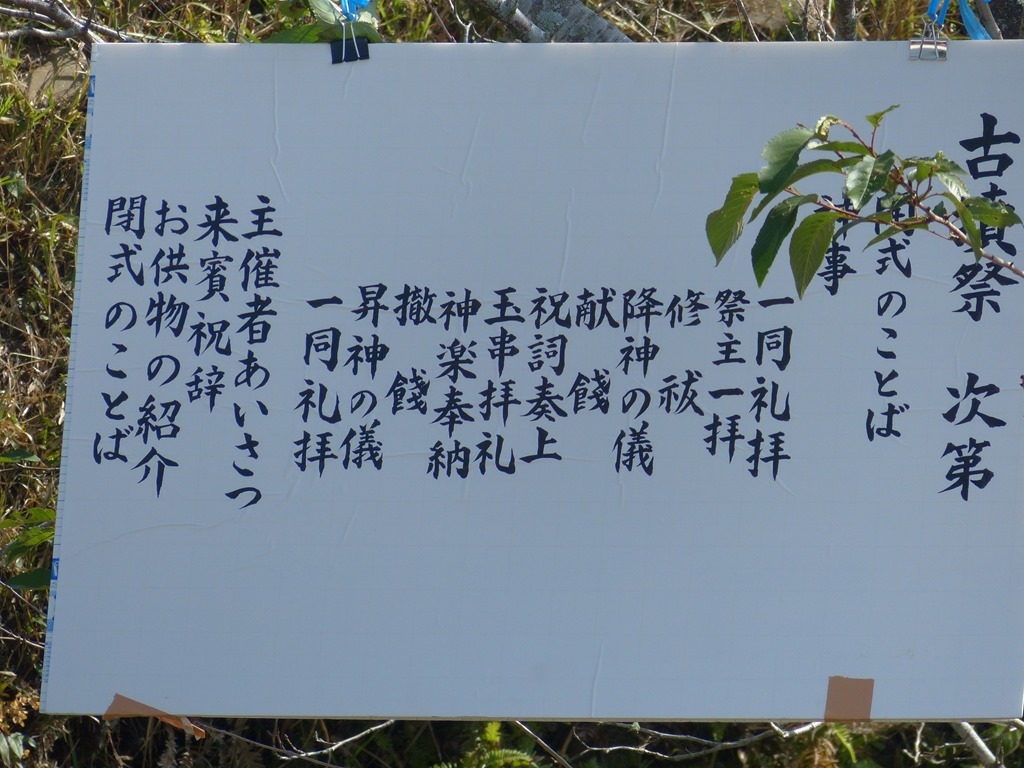 古墳祭　次第
開式のことば
神事
一同礼拝
祭主一拝
修　祓
降神の儀
献　餞
祝詞奏上
玉串拝礼
神楽奉納
撤　餞
昇神の儀
一同礼拝
主催者あいさつ
来賓祝辞
お供物の紹介
閉式のことば